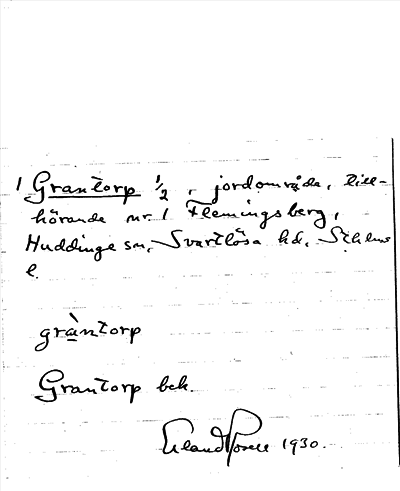 1 Grantorp 1/2, jordområde, till-
hörande nr. 1 Flemingsberg,
Huddinge sn, Svartlösa hd, Sthlms
l.
gràntorp
Grantorp bek.
Erland Rosell 1930.